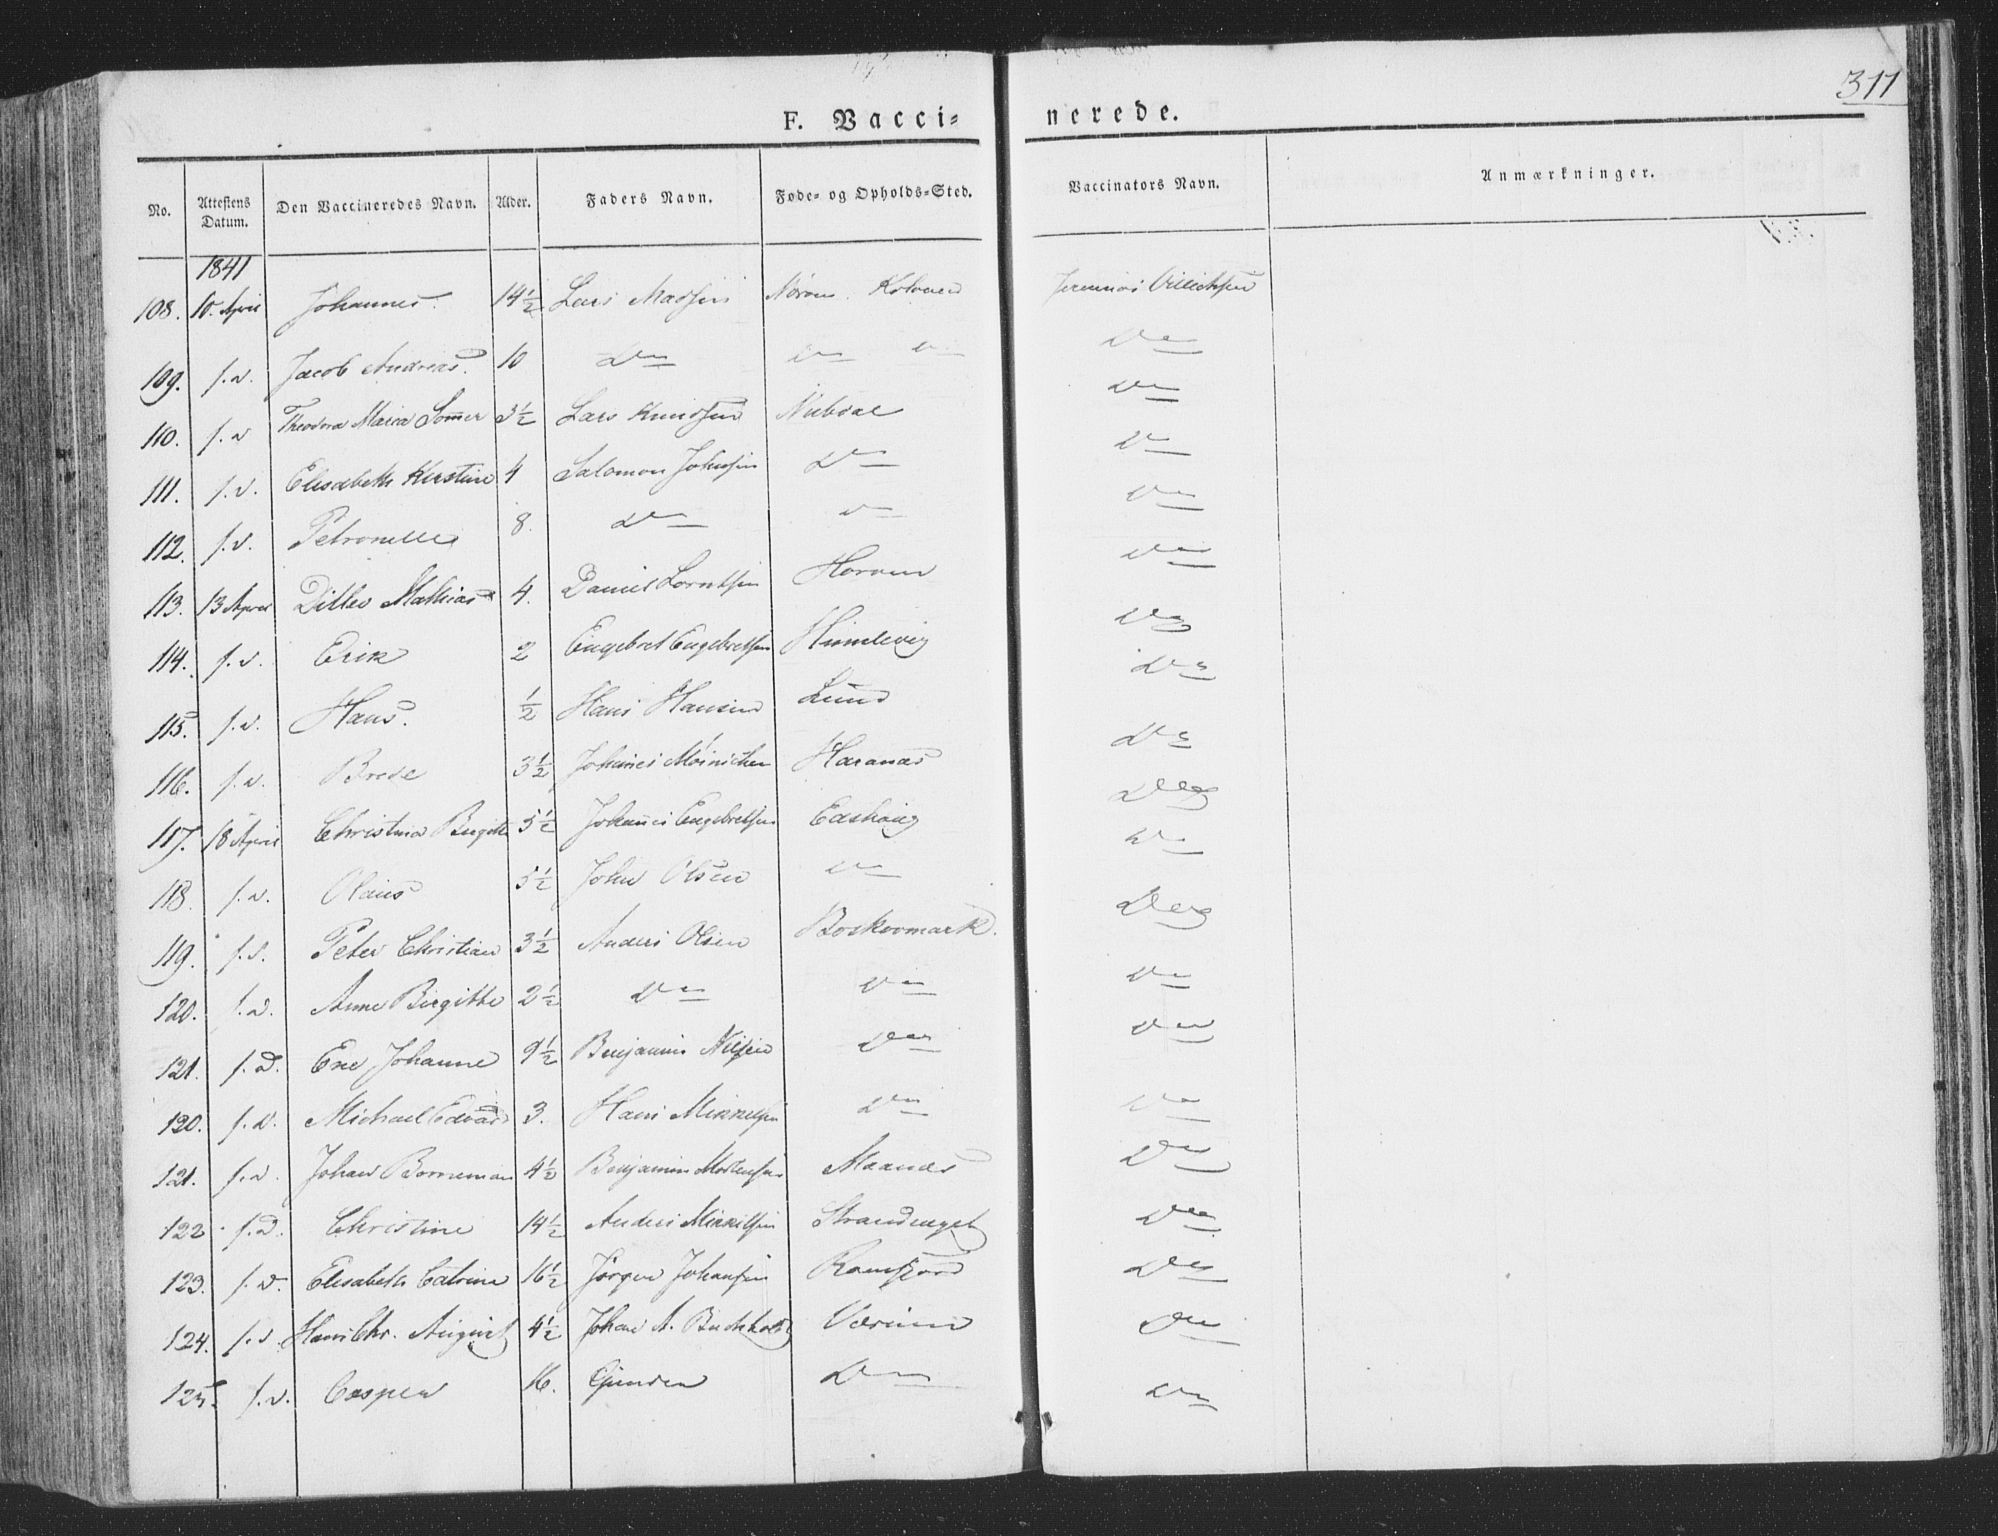 311
F. Vacci= nerede.
No. Attestens Datum. Den Vaccineredes Navn. Alder. Faders Navn. Føde= og Opholds=Sted. Vaccinators Navn. Anmærkninger.
1841
108. 10. April Johannes. 14½ Lars Madsen
109. s.d. Jacob Andreas. 10 Do Do Do Do
110. s.d. Theodora Maria Sommer 3½ Lars Knudsen Do
111. s.d. Elisabeth Kirstine 4 Salomon Johnsen Do Do
112. s.d. Petronelle 8. Do Do Do
113. 13 April Ditlev Mathias 4. Daniel Lorntsen Horven Do
114. s.d. Erik 2 Engebret Engebretsen Himlevig Do
115. s.d. Hans. ½ Hans Hansen Lund Do
116. s.d. Brede 3½ Johanes Møinichen Haranæs Do
117. 18 April Christina Birgitte 5½ Johanes Engebretsen Do
118. s.d. Olaus 5½ John Olsen Do Do
119. s.d. Peter Christian 3½ Anders Olsen Do
120. s.d. Anne Birgitte 2½ Do Do Do
121. s.d. Ene Johanne 9½ Benjamin Nilsen Do Do
120. s.d. Michael Edvard 3. Hans Mikkelsen Do Do
121. s.d. Johan Borneman 4½ Benjamin Mortensen Maanæs Do
122. s.d. Christine 14½ Anders Mikkelsen Strandenget Do
123. s.d. Elisabeth Catrine 16½ Jörgen Johansen Ramfjord Do
124. s.d. Hans Chr. August 4½ Johan A. Buchholdt Do
125. s.d. Casper 16. Do Do